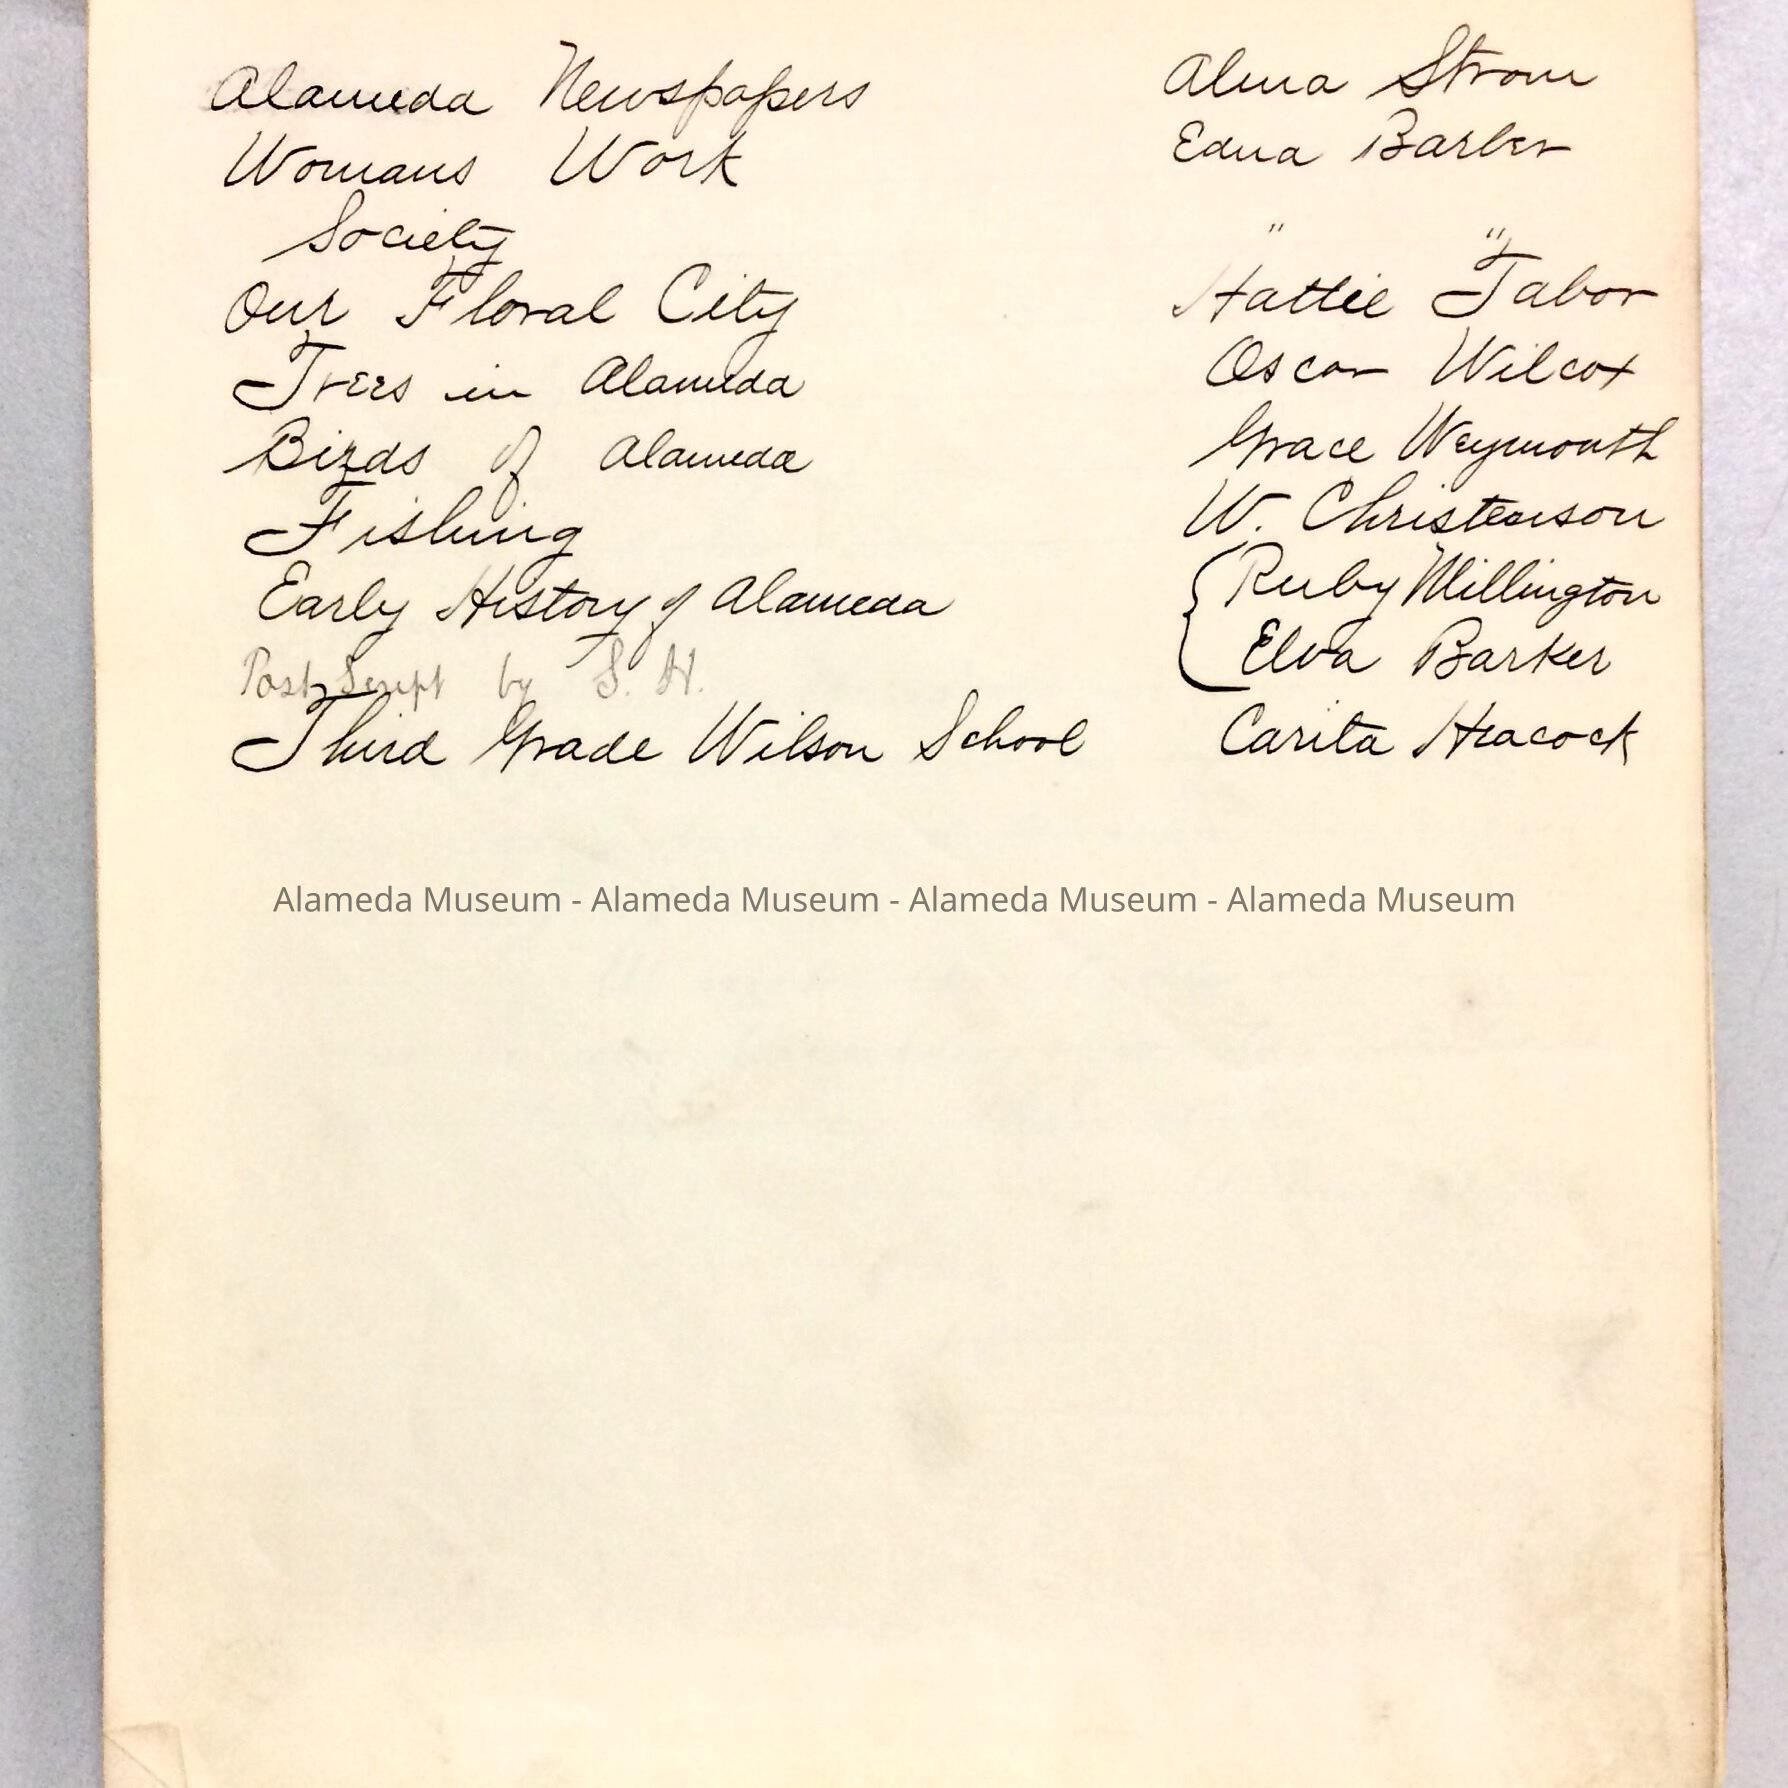 Alameda Newspapers Alma Strom
Womans Work Edna Barber
Society " "
Our Floral City Hattie Tabor
Trees in Alameda Oscar Wilcox
Birds of Alameda Grace Weymouth
Fishing W. Christenson
Early History of Alameda { Ruby Millington
Post Script by S. H. Elva Barker
Third Grade Wilson School Carita Heacock
Alameda Museum - Alameda Museum - Alameda Museum - Alameda Museum